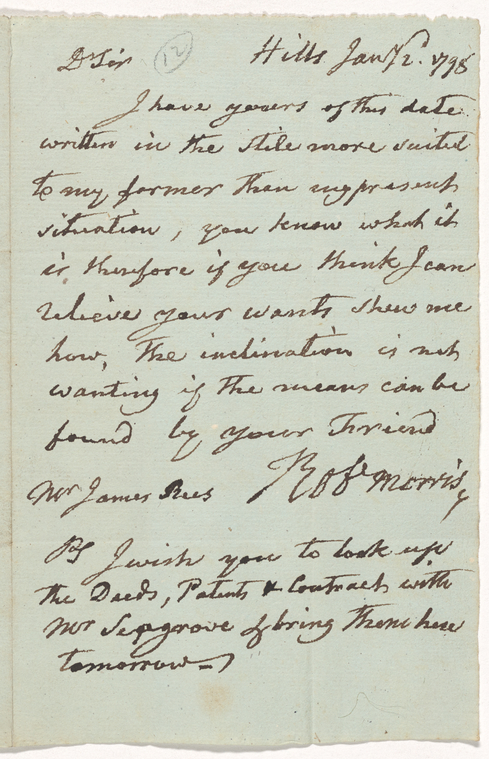 Dr Sir 12 Hills Jany 2d. 1798
I have yours of this date
written in the stile more suited
to my former than my present
situation, you know what it
is therefore if you think I can
relieve your wants shew me
how, the inclination is not
wanting if the means can be
found by your Friend
Mr James Rees Robt Morris
PS I wish you to look up
the Deeds, Patents & Contracts with
Mr Seagrove & bring them here
tomorrow